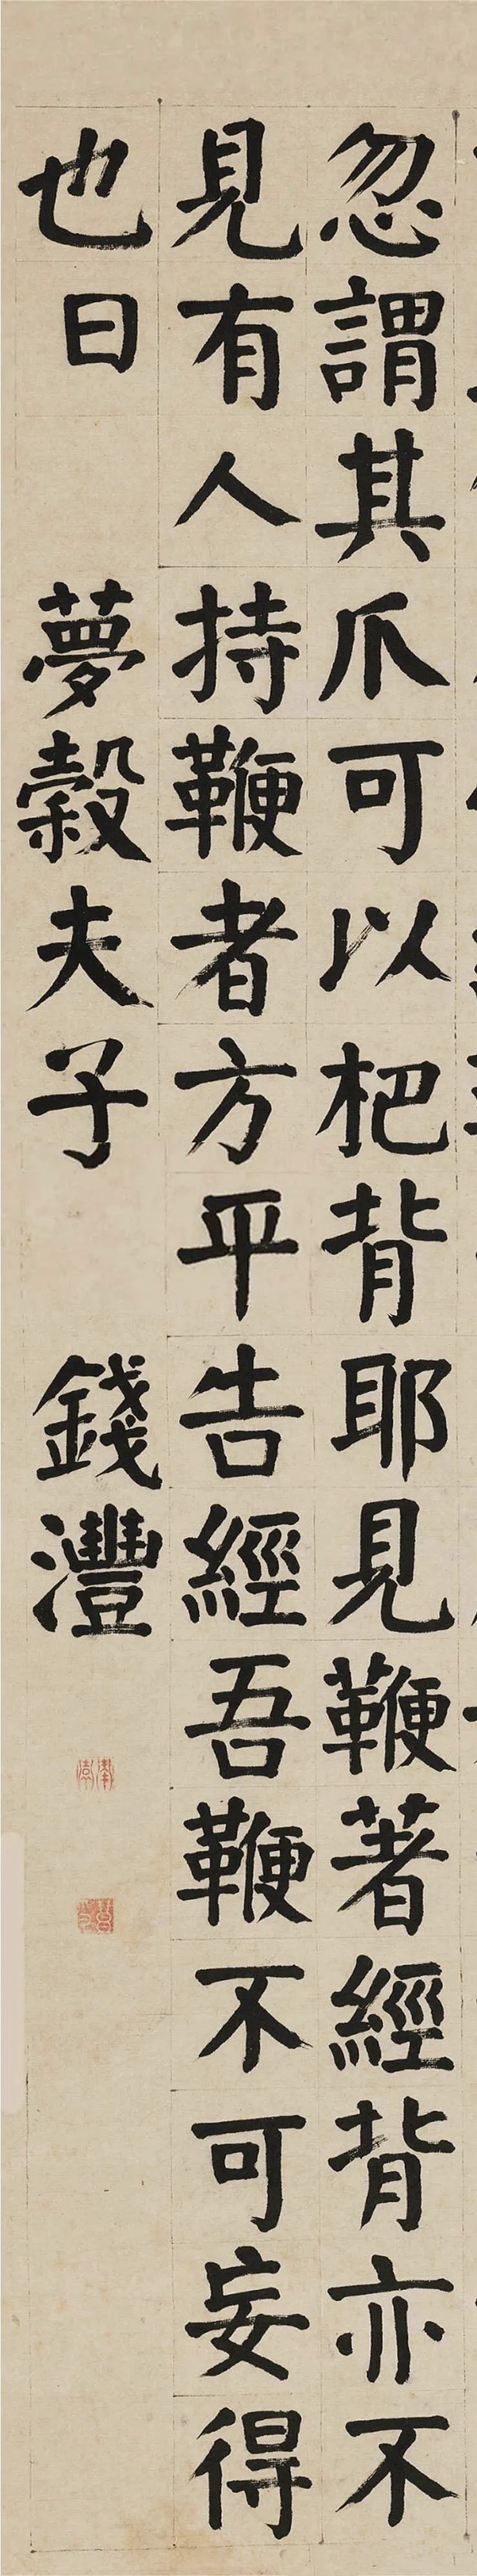 忽謂其爪可以杷背耶見鞭著經背亦不
見有人持鞭者方平告經吾鞭不可妄得
也日 夢穀夫子 錢灃